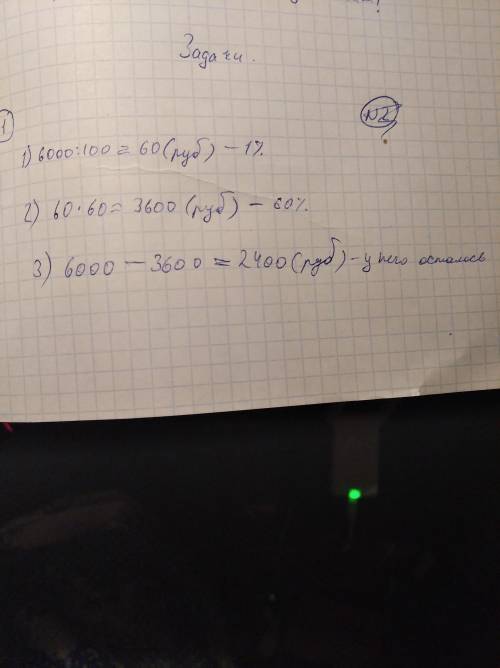 Задачи.
1
№2
1) 6000:100 = 60 (руб) - 1%.
2) 60·60 = 3600 (руб) - 60%.
3) 6000 - 3600 = 2400 (руб) - у него осталось